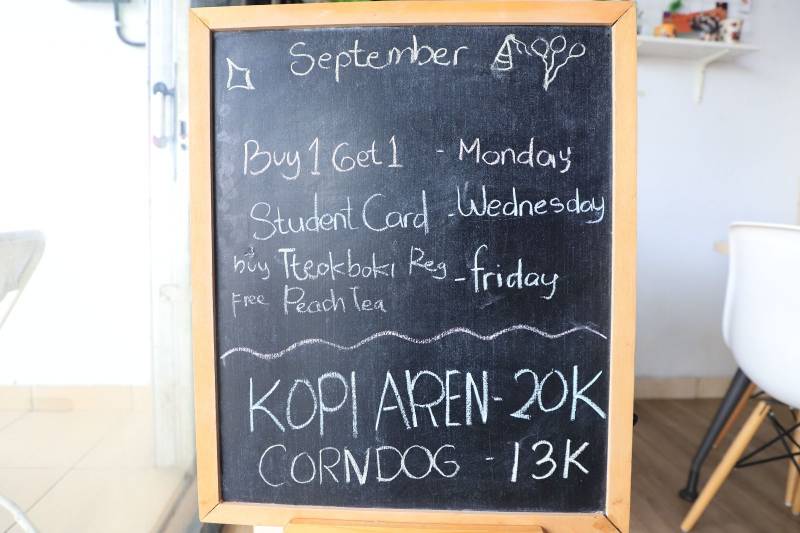 September
Buy 1 Get 1 - Monday
Student Card - Wednesday
buy Tteokboki Reg - friday
Free Peach Tea
KOPI AREN - 20K
CORNDOG - 13K